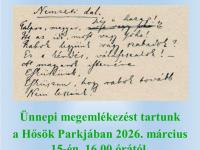 Nemzeti dal.
magyar, hí a haza!
Itt az idő, most vagy soha!
Rabok legyünk vagy szabadok?
Ez a kérdés, válasszatok! –
A magyarok istenére
Esküszünk,
Esküszünk, hogy rabok tovább
Nem leszünk!
Ünnepi megemlékezést tartunk
a Hősök Parkjában 2026. március
15-én, 16.00 órától